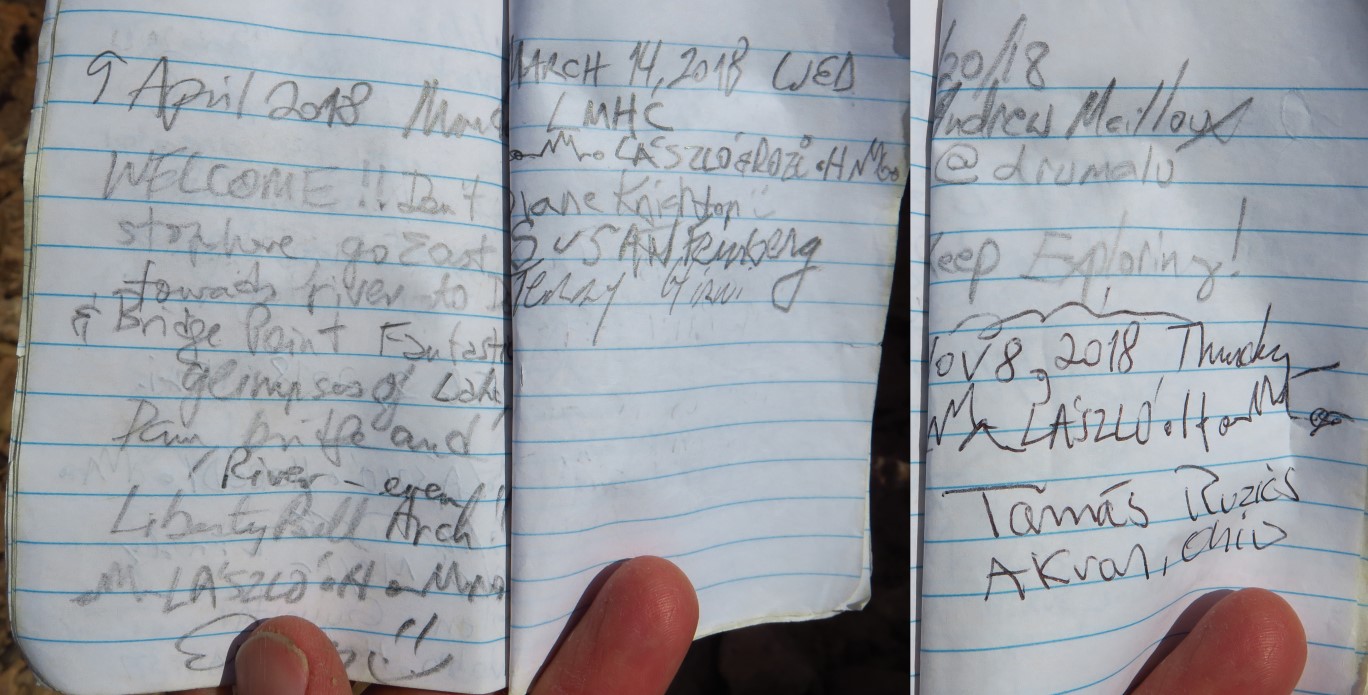 9 April 2018
WELCOME !! Don't
stop here, go East
towards river to
& Bridge Point Fantast
glimpses of Lake
Dam, bridge and
River - even
Liberty Bell Arch!
LÁSZLÓ
MARCH 14, 2018 WED
LMHC
LÁSZLÓ & ROZI
Diane Knighton
SUSAN Feinberg
/20/18
Andrew Mailloux
@drumalu
Keep Exploring!
Nov 8, 2018 Thursday
LÁSZLÓ
Tamás Ruzics
AKron, Ohio